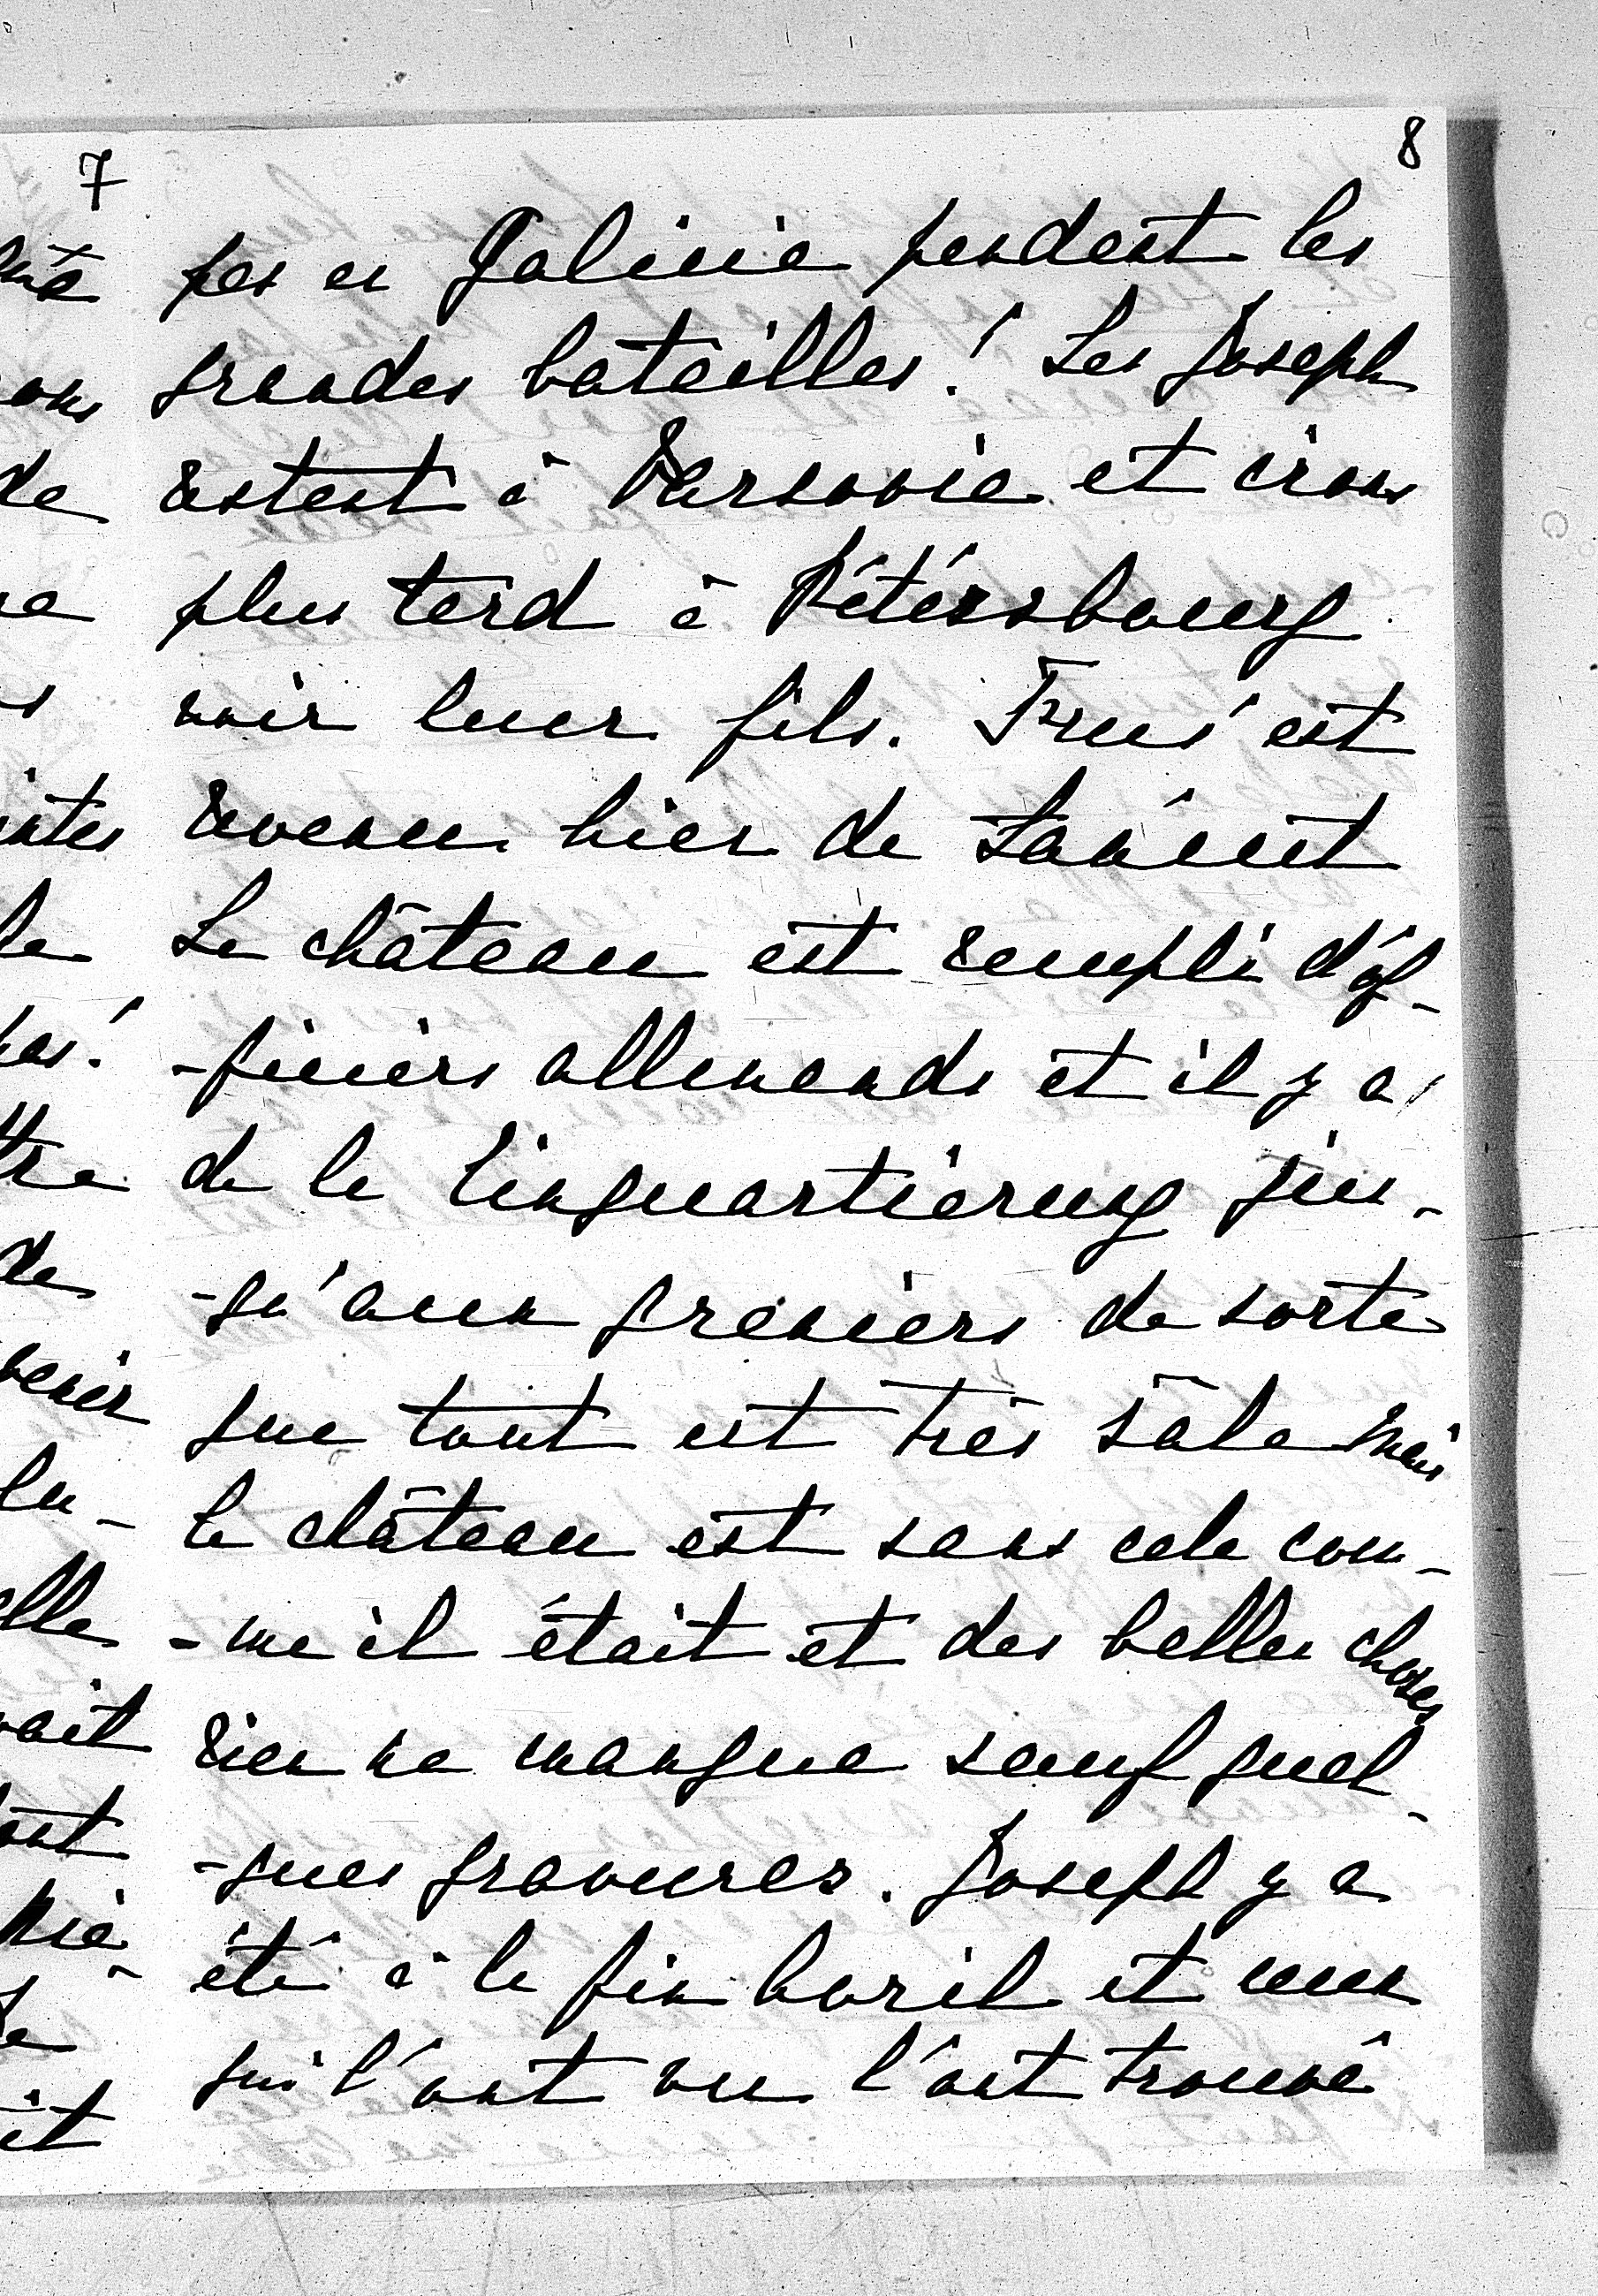 7
8
pas en Galicie pendant les
grandes batailles! Les Joseph
restent à Varsovie et irons
plus tard à Pétérsbourg
voir luer fils. est
revenu hier de Łańcut
Le château est rempli d'of-
-ficiers allemands et il y a
de la Einquartierung jus-
-qu'aux greniers de sorte
que tout est très sâle mais
le château est sans cela com-
-me il était et des belles choses
rien ne manque sauf quel-
-ques gravures. Joseph y a
été à la fin Avril et ceux
qui l'ont vu l'ont trouvé